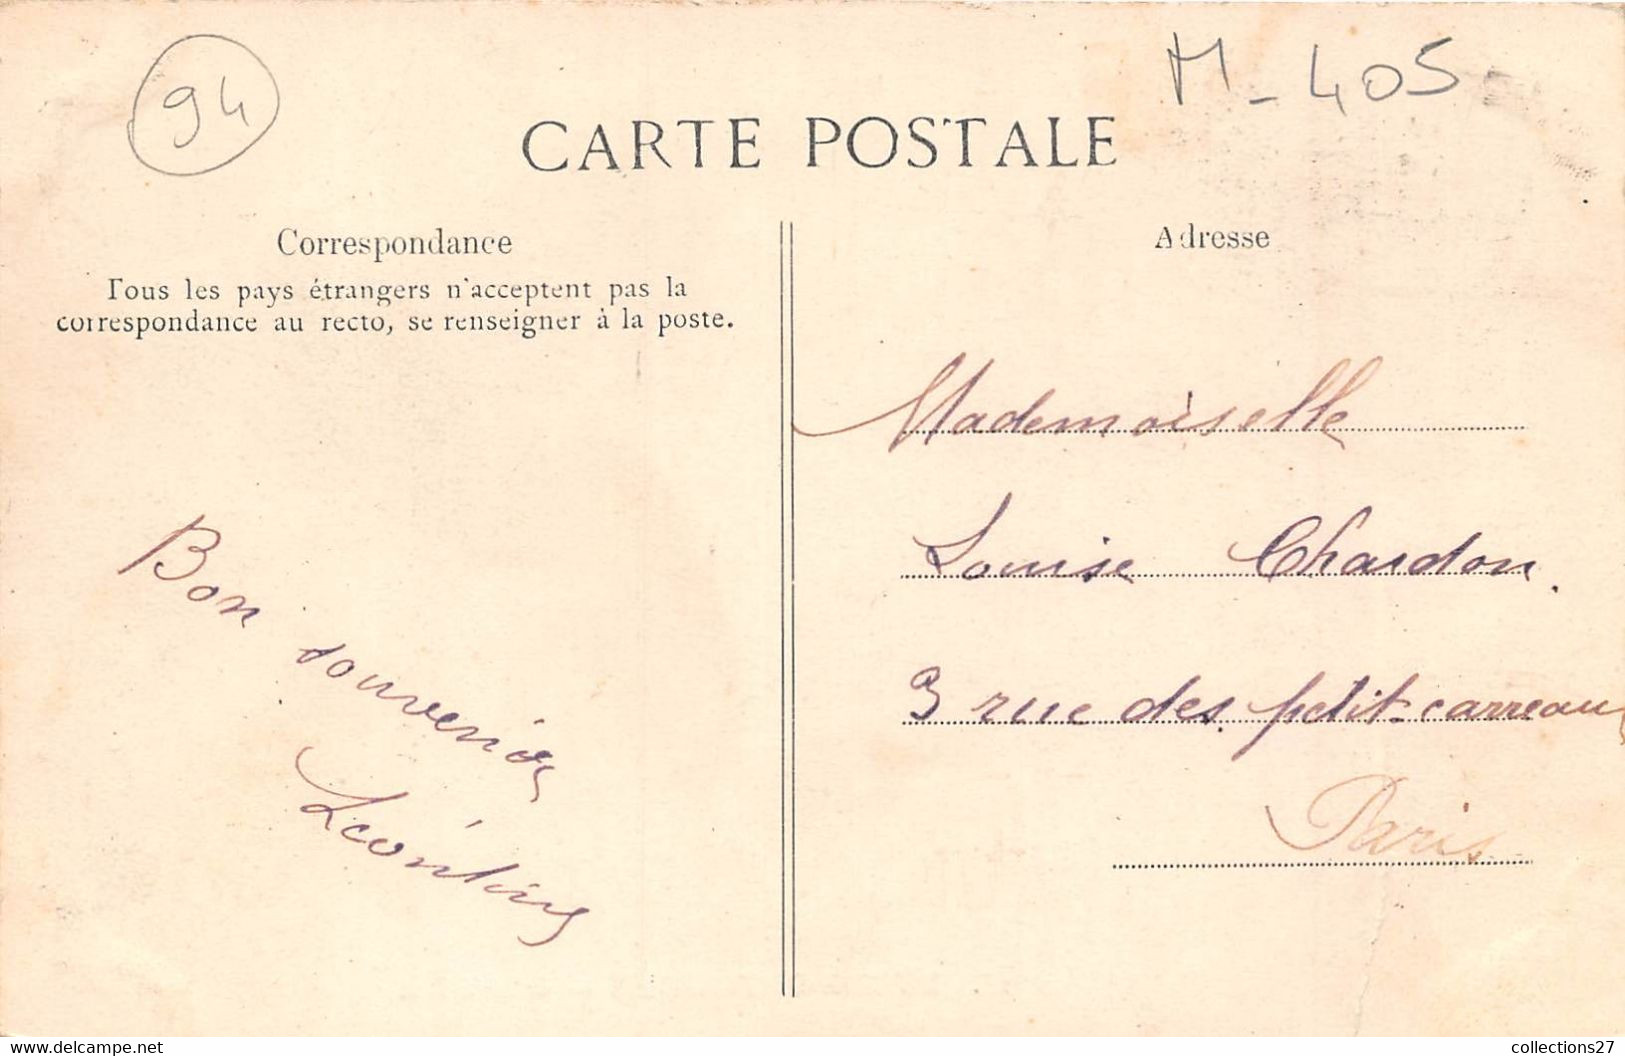 94
M-405
CARTE POSTALE
Correspondance
Tous les pays étrangers n'acceptent pas la
correspondance au recto, se renseigner à la poste.
Bon souvenir
Léontine
Adresse
Mademoiselle
Louise Chardon.
3 rue des petit-carreaux
Paris
www.delcampe.net
collections27